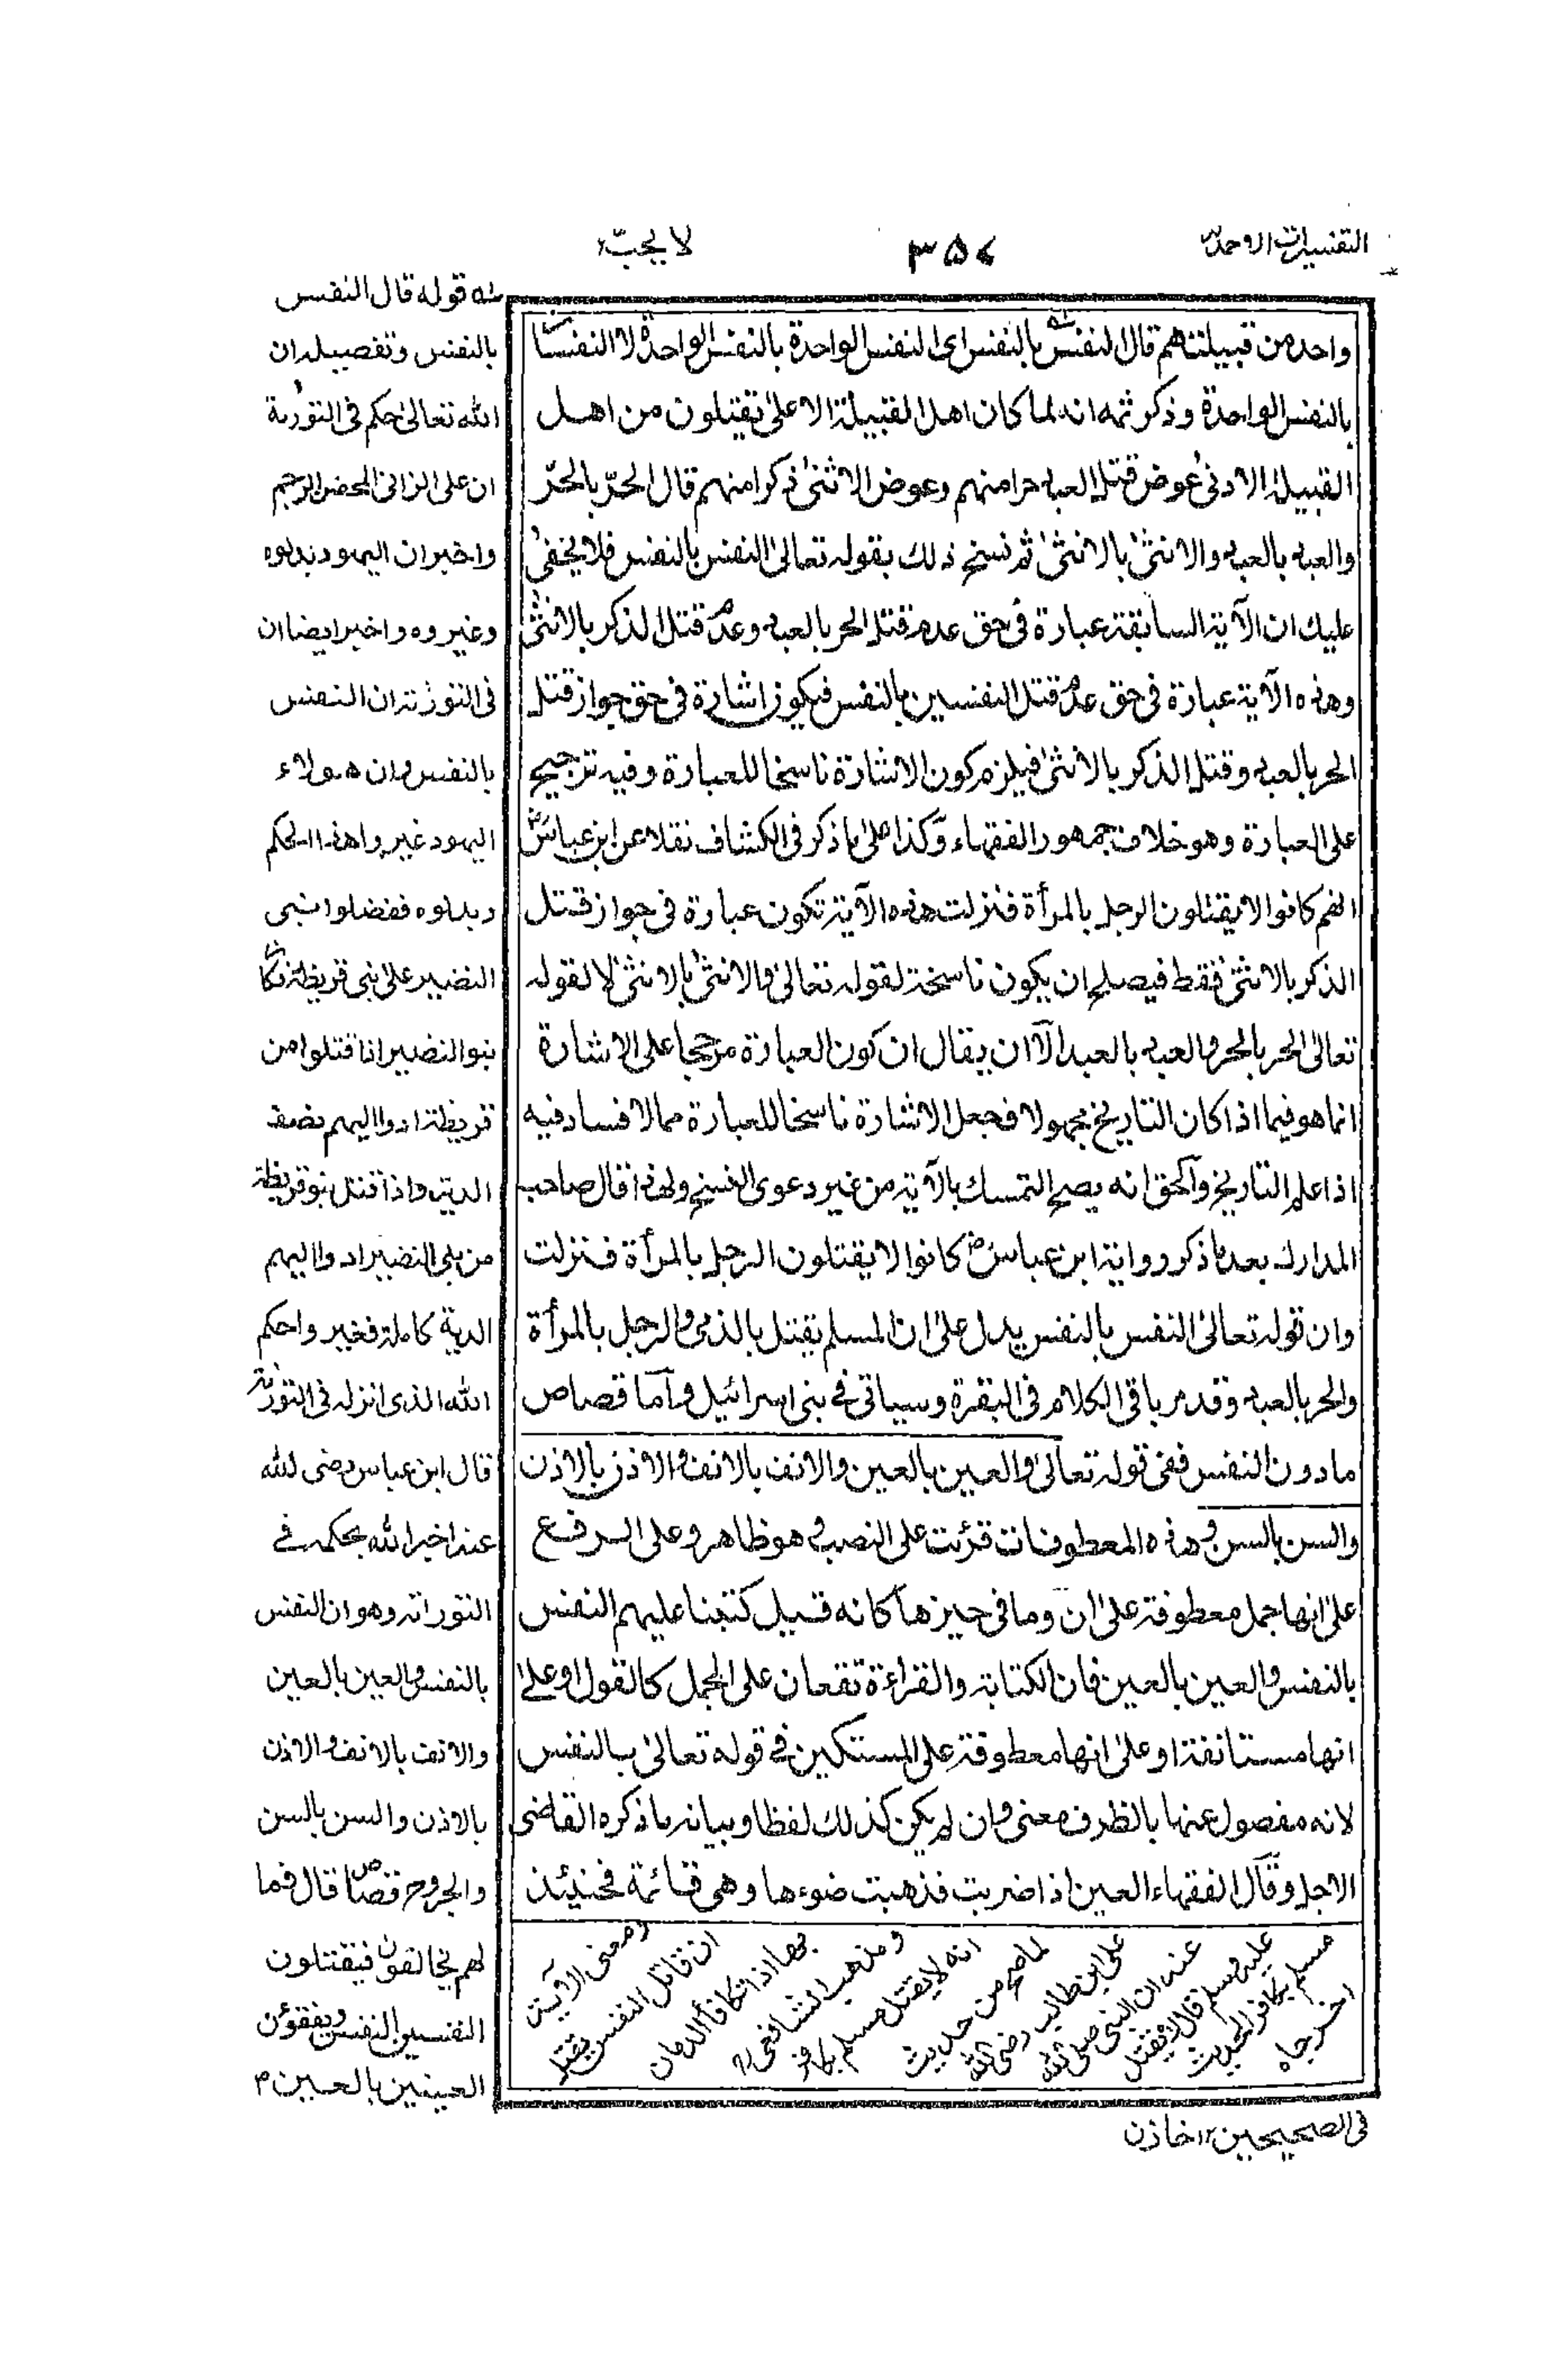 التفسيرات الاحمديه
٣٥٧
لا يحب
واحد من قبيلتهم قال النفس بالنفس اى النفس الواحدة بالنفس الواحدة لا النفسان
بالنفس الواحدة وذكر ثمه انه لما كان اهل القبيلة الاعلى تقتلون من اهل
القبيلة الادنى عوض قتل العبد حرا منهم وعوض الانثى ذكرا منهم قال الحرّ بالحرّ
والعبد بالعبد والانثى بالانثى ثم نسخ ذلك بقوله تعالى النفس بالنفس فلا يخفى
عليك ان الآية السابقة عبارة فى حق عدم قتل الحر بالعبد وعدم قتل الذكر بالانثى
وهذه الآية عبارة فى حق عدم قتل النفسين بالنفس فيكون اشارة فى حق جواز قتل
الحر بالعبد وقتل الذكر بالانثى فيلزم كون الاشارة ناسخا للعبارة وفيه ترجيح
على العبارة وهو خلاف جمهور الفقهاء وكذا على ما ذكر فى الكشاف نقلا عن ابن عباس
انهم كانوا لا يقتلون الرجل بالمرأة فنزلت هذه الآية تكون عبارة فى جواز قتل
الذكر بالانثى فقط فيصلح ان يكون ناسخة لقوله تعالى والانثى بالانثى لا لقوله
تعالى الحر بالحر والعبد بالعبد الّا ان يقال ان كون العبارة مرجحا على الاشارة
انما هو فيما اذا كان التاريخ مجهولا فجعل الاشارة ناسخا للعبارة مما لا فساد فيه
اذا علم التاريخ والحق انه يصح التمسك بالآية من غير دعوى النسخ ولهذا قال صاحب
المدارك بعد ما ذكر رواية ابن عباس كانوا لا يقتلون الرجل بالمرأة فنزلت
وان قوله تعالى النفس بالنفس يدل على ان المسلم يقتل بالذمى والرجل بالمرأة
والحر بالعبد وقد مر باقى الكلام فى البقرة وسياتى فى بنى اسرائيل وآما قصاص
مادون النفس ففى قوله تعالى والعين بالعين والانف بالانف والاذن بالاذن
والسن بالسن وهذه المعطوفات قرئت على النصب وهو ظاهر وعلى الرفع
على انها جمل معطوفة على ان وما فى حيزها كانه قيل كتبنا عليهم النفس
بالنفس والعين بالعين فان الكتابة والقراءة تقعان على الجمل كالقول او على
انها مستانفة او على انها معطوفة على المستكين فى قوله تعالى بالنفس
لانه مفصول عنها بالظرف معنى وان لم يكن كذلك لفظا وبيانه ما ذكره القاضى
الاجل وقال الفقهاء العين اذا ضربت فذهبت ضوءها وهى قائمة فحينئذ
سه قوله قال النفس
بالنفس وتفصيله ان
الله تعالى حكم فى التورية
ان على الزانى المحصن الرجم
واخبر ان اليهود بدلوه
وغيروه واخبر ايضا ان
فى التورية ان النفس
بالنفس وان هولاء
اليهود غيروا هذا الحكم
وبدلوه ففضلوا بنى
النضير على بنى قريظة فكان
بنو النضير اذا قتلوا من
قريظة ادوا اليهم نصف
الدية واذا قتل بنو قريظة
من بنى النضير ادوا اليهم
الدية كاملة فغيروا حكم
الله الذى انزله فى التورية
قال ابن عباس رضى الله
عنه اخبر الله بحكمه فى
التوراته وهو ان النفس
بالنفس والعين بالعين
والانف بالانف والاذن
بالاذن والسن بالسن
والجروح قصاص قال فما
لهم يخالفون فيقتلون
النفسين بالنفس ويفقؤن
العينين بالعين م
ومعنى الآية
ان قاتل النفس يقتل
بها اذا تكافأ الدمان
ومذهب الشافعى رح
انه لا يقتل مسلم بكافر
لما صح من حديث
على ابن طالب رضى الله
عنه ان النبى صلى الله
عليه وسلم قال لا يقتل
مسلم بكافر الحديث
اخرجاه
فى الصحيحين ١٢ خازن